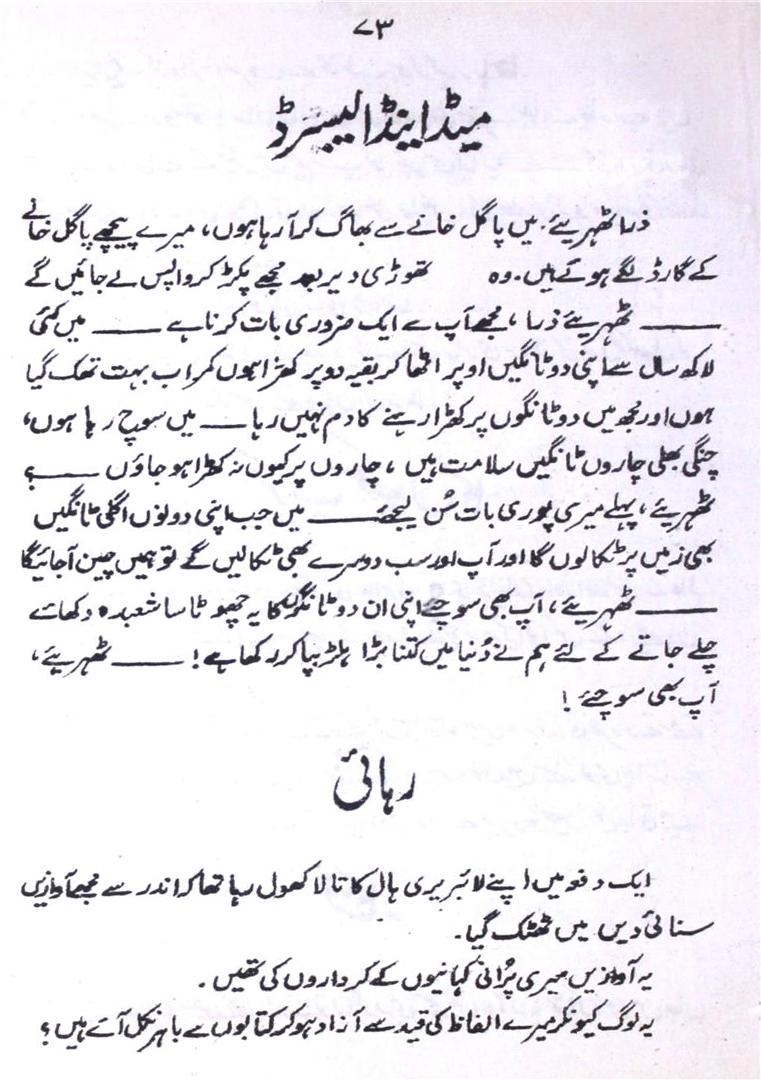 ۷۳
میڈ اینڈ ایبسرڈ
ذرا ٹھہریئے، میں پاگل خانے سے بھاگ کر آ رہا ہوں، میرے پیچھے پاگل خانے
کے گارڈ لگے ہوئے ہیں۔ وہ تھوڑی دیر بعد مجھے پکڑ کر واپس لے جائیں گے
—— ٹھہریئے ذرا، مجھے آپ سے ایک ضروری بات کرنا ہے —— میں کئی
لاکھ سال سے اپنی دو ٹانگیں اوپر اٹھا کر بقیہ دو پر کھڑا ہوں مگر اب بہت تھک گیا
ہوں اور مجھ میں دو ٹانگوں پر کھڑا رہنے کا دم نہیں رہا —— میں سوچ رہا ہوں،
چنگی بھلی چاروں ٹانگیں سلامت ہیں، چاروں پر کیوں نہ کھڑا ہو جاؤں ——؟
ٹھہریئے، پہلے میری پوری بات سُن لیجئے —— میں جب اپنی دونوں اگلی ٹانگیں
بھی زمیں پر ٹکا لوں گا اور آپ اور سب دوسرے بھی ٹکا لیں گے تو ہمیں چین آ جائیگا
—— ٹھہریئے، آپ بھی سوچئے اپنی ان دو ٹانگوں کا یہ چھوٹا سا شعبدہ دکھائے
چلے جانے کے لئے ہم نے دُنیا میں کتنا بڑا ہلڑ بپا کر رکھا ہے! —— ٹھہریئے،
آپ بھی سوچئے!
رہائی
ایک دفعہ میں اپنے لائبریری ہال کا تالا کھول رہا تھا کہ اندر سے مجھے آوازیں
سنائی دیں میں ٹھٹک گیا۔
یہ آوازیں میری پُرانی کہانیوں کے کرداروں کی تھیں۔
یہ لوگ کیونکر میرے الفاظ کی قید سے آزاد ہو کر کتابوں سے باہر نکل آئے ہیں؟